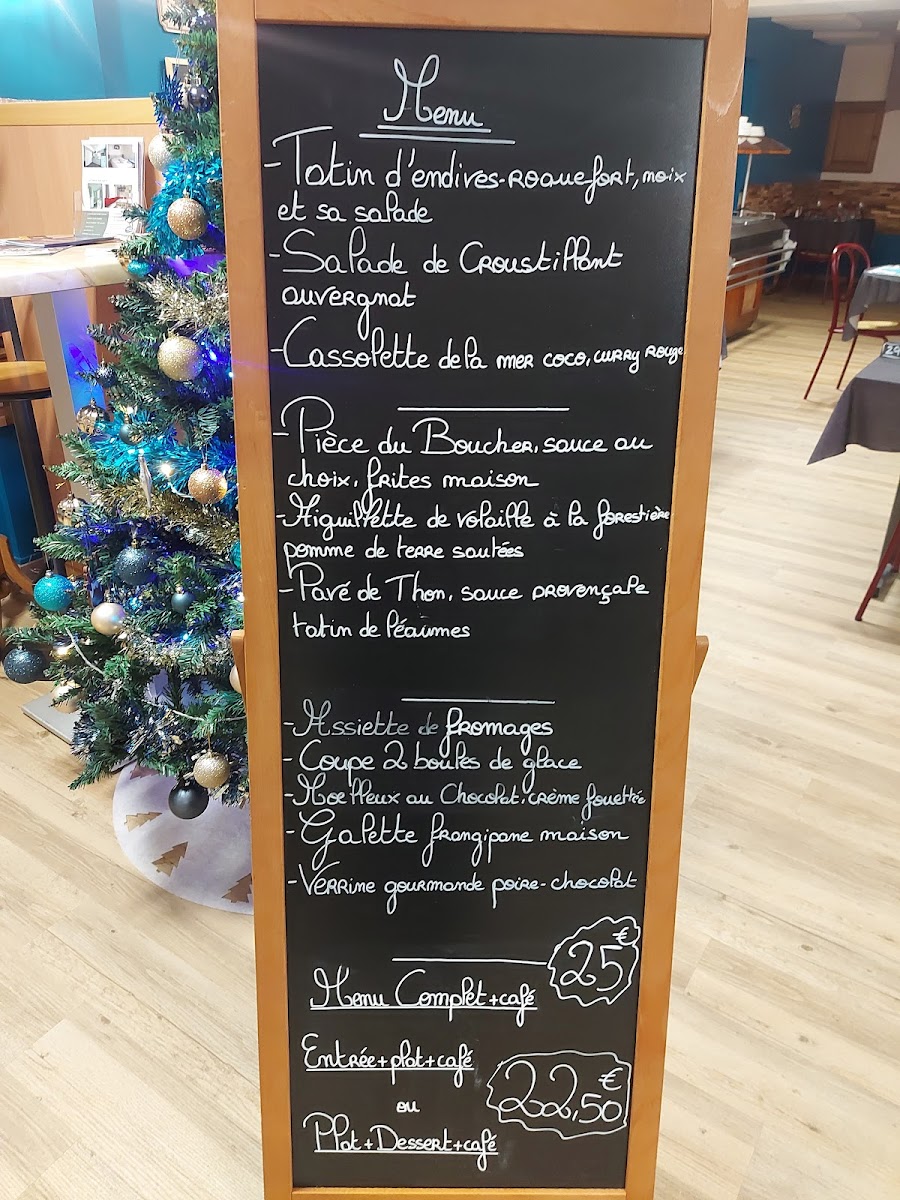 Menu
- Tatin d'endives-roquefort, noix
et sa salade
- Salade de Croustillant
auvergnat
- Cassolette de la mer coco, curry rouge
- Pièce du Boucher, sauce au
choix, frites maison
- Aiguillette de volaille à la forestière
pomme de terre sautées
- Pavé de Thon, sauce provençale
tatin de légumes
- Assiette de fromages
- Coupe 2 boules de glace
- Moelleux au Chocolat, crème fouettée
- Galette frangipane maison
- Verrine gourmande poire-chocolat
25€
Menu Complet + café
Entrée + plat + café
ou
22,50€
Plat + Dessert + café